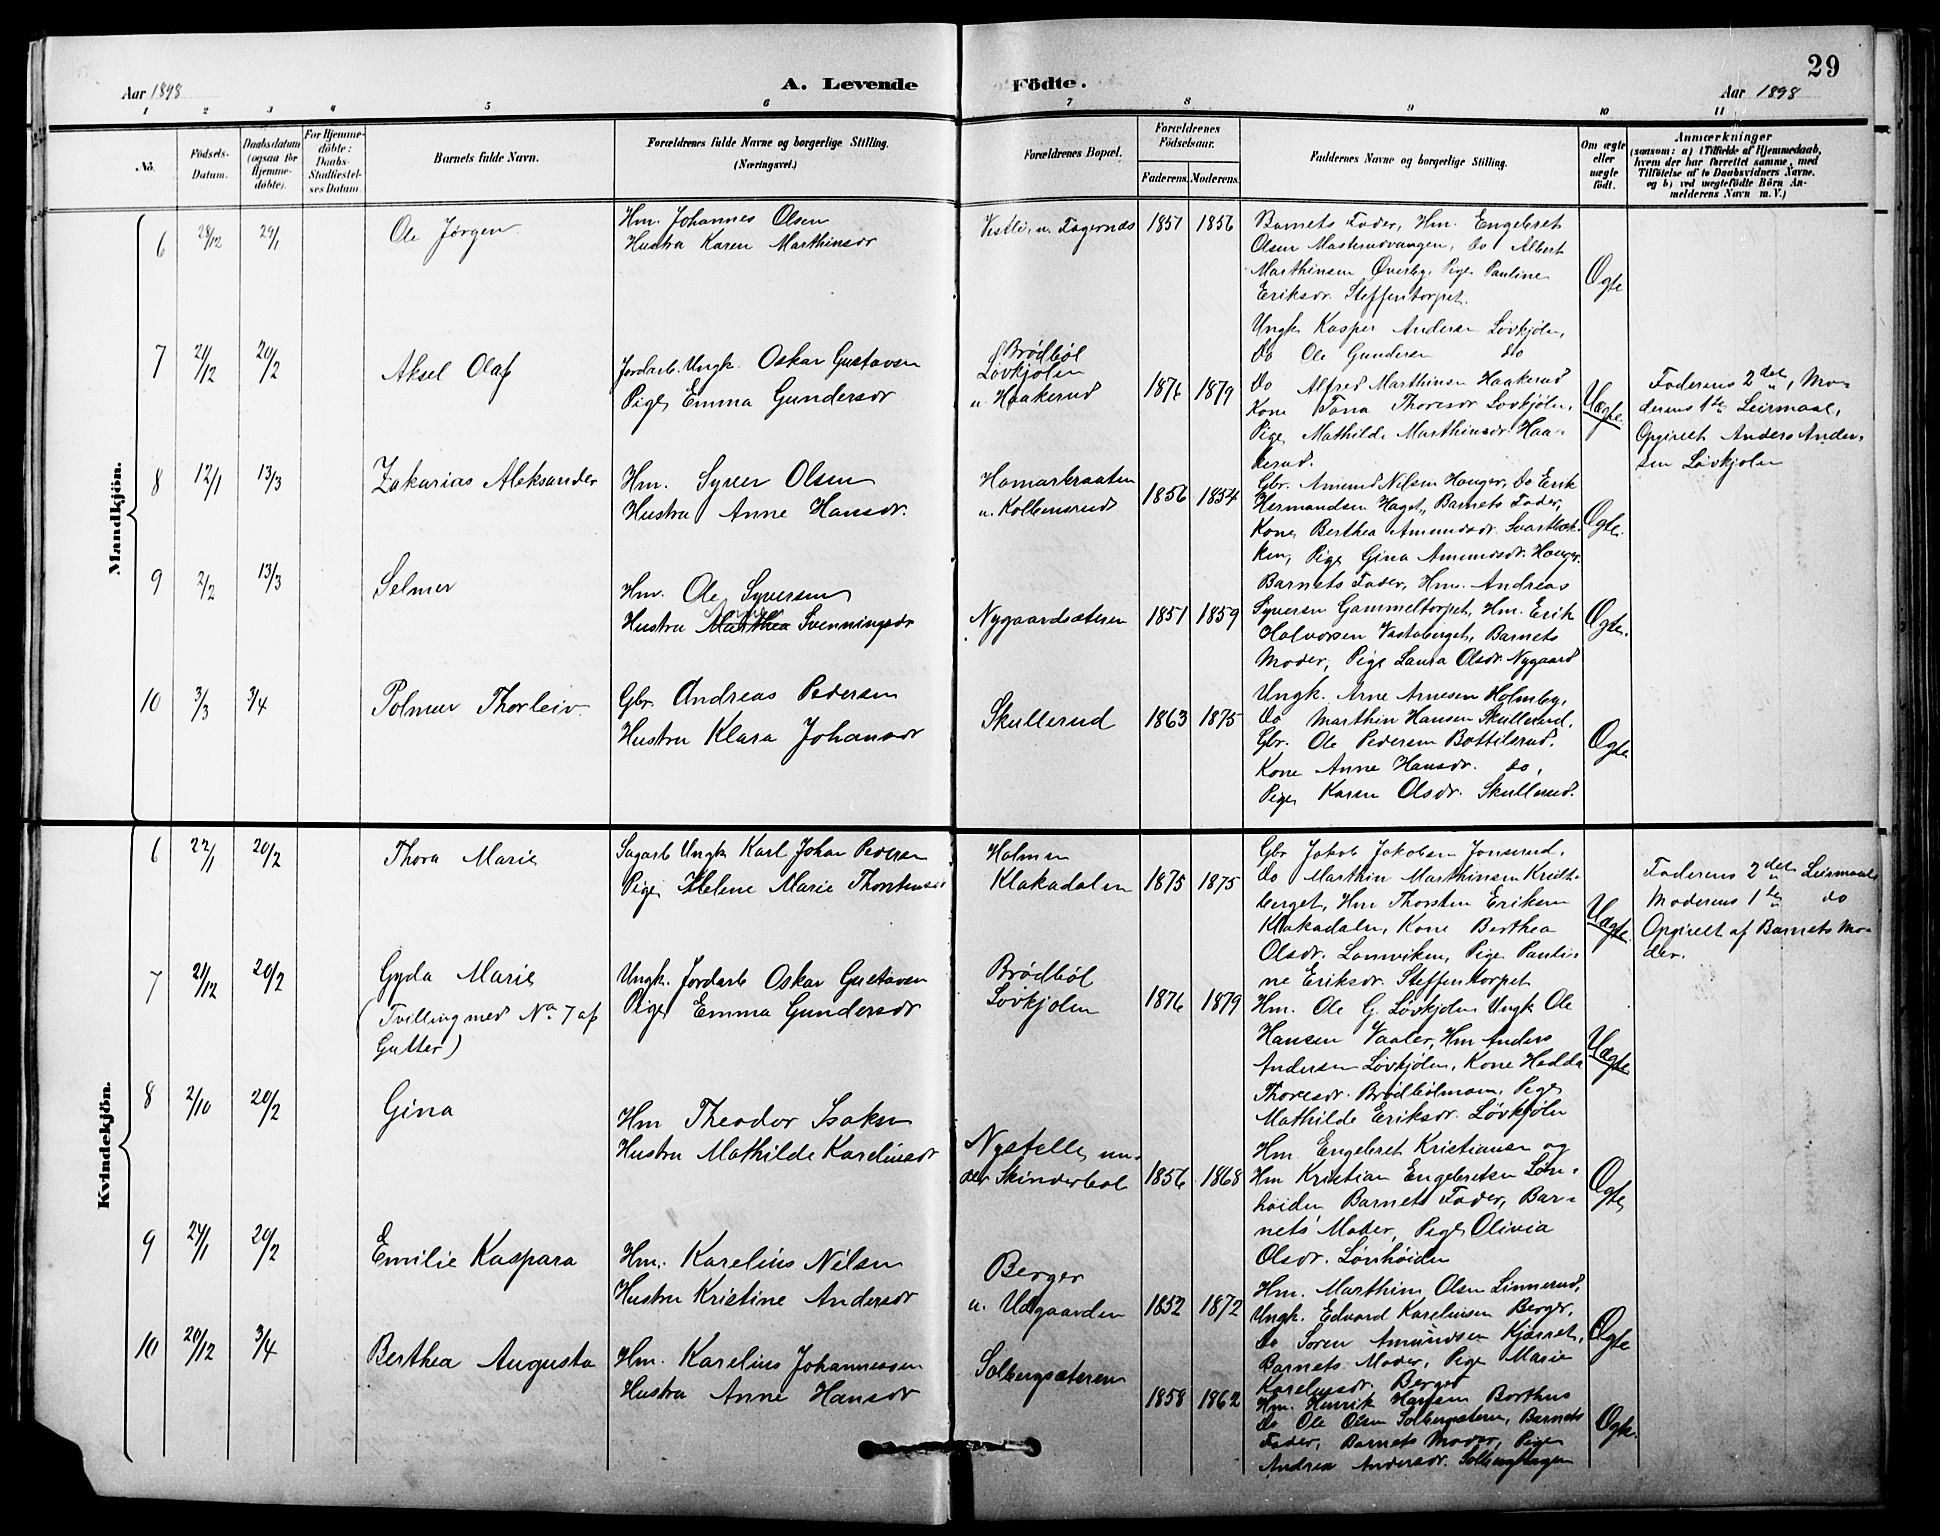 29
Aar 1898
A. Levende Födte.
Aar 1898
1 2 3 4 5 6 7 8 9 10 11
No.
Födsels-Datum.
Daabsdatum (ogsaa for Hjemmedöbte).
For Hjemmedöbte: Daabs-Stadfæstelses Datum
Barnets fulde Navn.
Forældrenes fulde Navne og borgerlige Stilling. (Næringsvei.)
Forældrenes Bopæl.
Forældrenes Födselsaar.
Faderens. Moderens.
Faddernes Navne og borgerlige Stilling.
Om ægte eller uægte födt.
Anmærkninger
(saasom: a) i Tilfælde af Hjemmedaab, hvem der har forrettet samme, med Tilföielse af to Daabsvidners Navne. og b) ved uægtefödte Börn Anmelderens Navn m. V.)
Mandkjön.
6 28/12 29/1 Ole Jørgen
Hm. Johannes Olsen
Hustru Karen Marthinsdr
Vestli u. Fagernæs 1857 1856
Barnets Fader, Hm. Engebret
Olsen Masterudvangen, do Albert
Marthinsen Øverby, Pige Pauline
Eriksdr. Steffentorpet.
Ægte
7 21/12 20/2 Aksel Olaf
Jordarb. Ungk. Oskar Gustavsen
Pige Emma Gundersdr
Brødbøl
Løvkjølen
u. Haakerud 1876 1879
Ungk Kasper Andersen Løvkjølen,
do Ole Gundersen do
do Alfred Marthinsen Haakerud
Kone Tona Thoresdr Løvkjølen,
Pige Mathilde Marthinsdr. Haa-
kerud.
Uægte.
Faderens 2det, Mo-
derens 1te Leiermaal,
Opgivelt Anders Ander-
sen Løvkjølen
8 12/1 13/3 Zakarias Aleksander
Hm. Syver Olsen
Hustru Anne Hansdr.
Homarkraaten
u. Kolbensrud 1856 1854
Gbr. Amund Nilsen Hauger, do Erik
Hermandsen Haget, Barnets Fader,
Kone Berthea Amundsdr. Svartbæk-
ken, Pige Gina Amundsdr. Hauger.
Ægte.
9 2/2 13/3 Selmer
Hm. Ole Syversen
Hustru Marthea Svenningsdr
Nygaardsæteren 1851 1859
Barnets Fader, Hm. Andreas
Syversen Gammeltorpet, Hm. Erik
Halvorsen Vastaberget, Barnets
Moder, Pige Laura Olsdr. Nygaard
Ægte.
10 3/3 3/4 Polmer Thorleiv
Gbr. Andreas Pedersen
Hustru Klara Johansdr
Skullerud 1863 1875
Ungk. Arne Arnesen Holmsby,
do Marthin Hansen Skullerud,
Gbr. Ole Pedersen Bottilsrud,
Kone Anne Hansdr. do,
Pige Karen Olsdr. Skullerud.
Ægte
Kvindekjön.
6 22/1 20/2 Thora Marie
Sagarb Ungk Karl Johan Pedersen
Pige Helene Marie Thorstensdr
Holmen
Klakadalen 1875 1875
Gbr Jakob Jakobsen Jonsrud,
do Marthin Marthinsen Kridt-
berget, Hm Thorsten Eriksen
Klakadalen, Kone Berthea
Olsdr. Lomviken, Pige Pauli-
ne Eriksdr. Steffentorpet
Uægte.
Faderens 2det Leiermaal,
Moderens 1te do
Opgivelt af Barnets Mo-
der.
7 21/12 20/2 Gyda Marie
(Tvilling med No 7 af
Gutter)
Ungk. Jordarb Oskar Gustavsen
Pige Emma Gundersdr
Brødbøl
Løvkjølen 1876 1879
Hm. Ole G. Løvkjølen Ungk Ole
Hansen Vaaler, Hm Anders
Andersen Løvkjølen, Kone Hedda
Thoresdr. Brødbølmoen, Pige
Mathilde Eriksdr. Løvkjølen
Uægte
8 2/10 20/2 Gina
Hm Theodor Isaksen
Hustru Mathilde Kareliusdr
Nystelle un-
der Skinderbøl 1856 1868
Hm. Engebret Kristiansen og
Hm Kristian Engebretsen Løn-
høiden Barnets Fader, Bar-
nets Moder, Pige Olivia
Olsdr. Lønhøiden
Ægte
9 24/1 20/2 Emilie Kaspara
Hm. Karelius Nilsen
Hustru Kristine Andersdr
Berger
u. Udgaarden 1852 1872
Hm. Marthin Olsen Linnerud,
Ungk. Edvard Kareliusen Berger,
do Søren Amundsen Kjærret,
Barnets Moder, Pige Marie
Kareliusdr. Berger
Ægte
10 20/12 3/4 Berthea Augusta
Hm. Karelius Johannessen
Hustru Anne Hansdr
Solbergsæteren
1858 1862
Hm. Henrik Hansen Borthus
do Ole Olsen Solbergsæteren, Barnets
Fader, Barnets Moder, Pige
Andrea Andersdr. Solberghagen
Ægte.